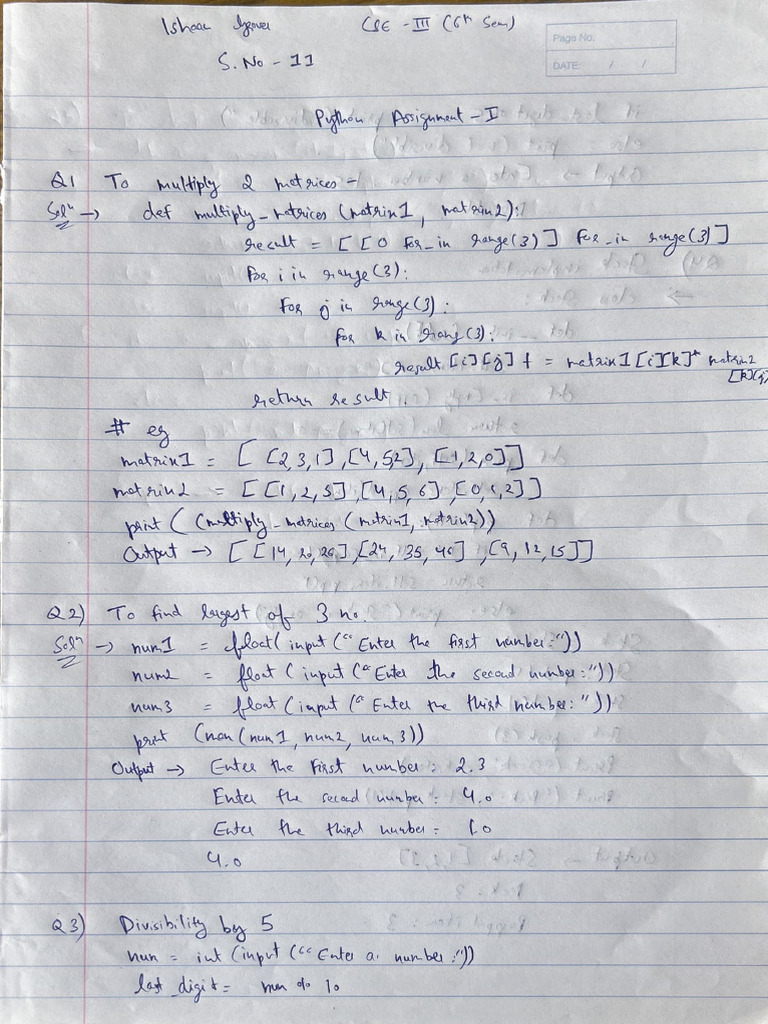 Ishaan Grover CSE - III (6th Sem)
S. No - 11
Page No.
DATE: / /
Python Assignment - I
Q1 To multiply 2 matrices -
Soln → def multiply_matrices (matrix1, matrix2):
result = [[0 for _ in range(3)] for _ in range(3)]
for i in range(3):
for j in range(3):
for k in rang(3):
result [i][j] += matrix1[i][k]* matrix2
[k][j]
return result.
# eg
matrix1 = [[2,3,1],[4,5,2],[1,2,0]]
matrix2 = [[1,2,3],[4,5,6],[0,1,2]]
print ((multiply_matrices (matrix1, matrix2))
Output → [[14, 20, 26],[24, 35, 46],[9, 12, 15]]
Q2) To find largest of 3 no.
Soln → num1 = float(input ("Enter the first number:"))
num2 = float (input ("Enter the second number:"))
num3 = float (input ("Enter the third number:"))
print (max(num1, num2, num3))
Output → Enter the first number: 2.3
Enter the second number: 4.0
Enter the third number: 1.0
4.0
Q3) Divisibility by 5
num = int (input ("Enter a number:"))
last_digit = num % 10